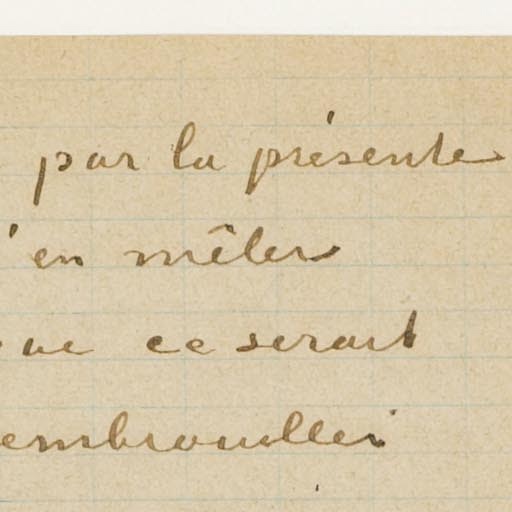 par la présente
'en mêler
ue ce serait
embrouiller